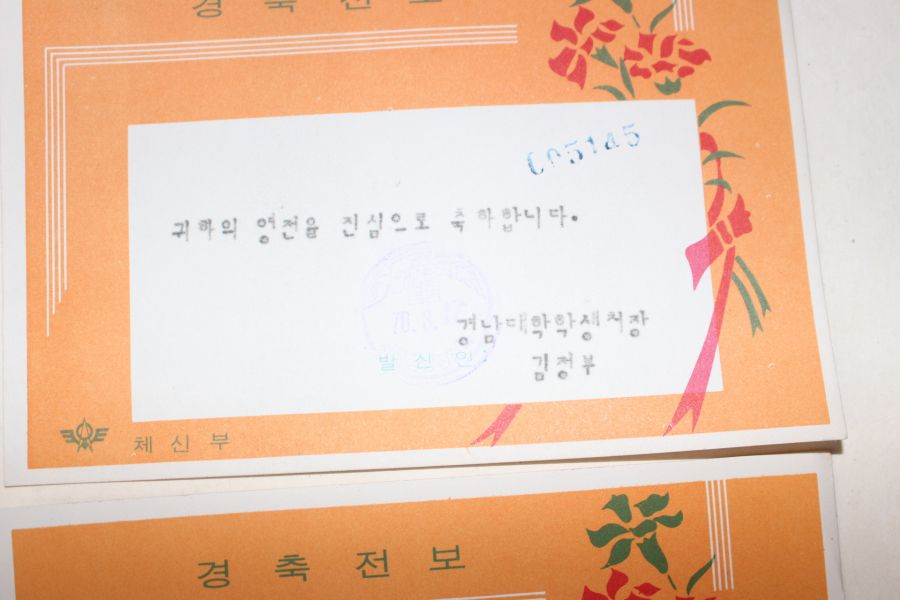 경축전보
005145
귀하의 영전을 진심으로 축하합니다.
70.8.
경남대학학생처장
발신인
김정부
체신부
경축전보